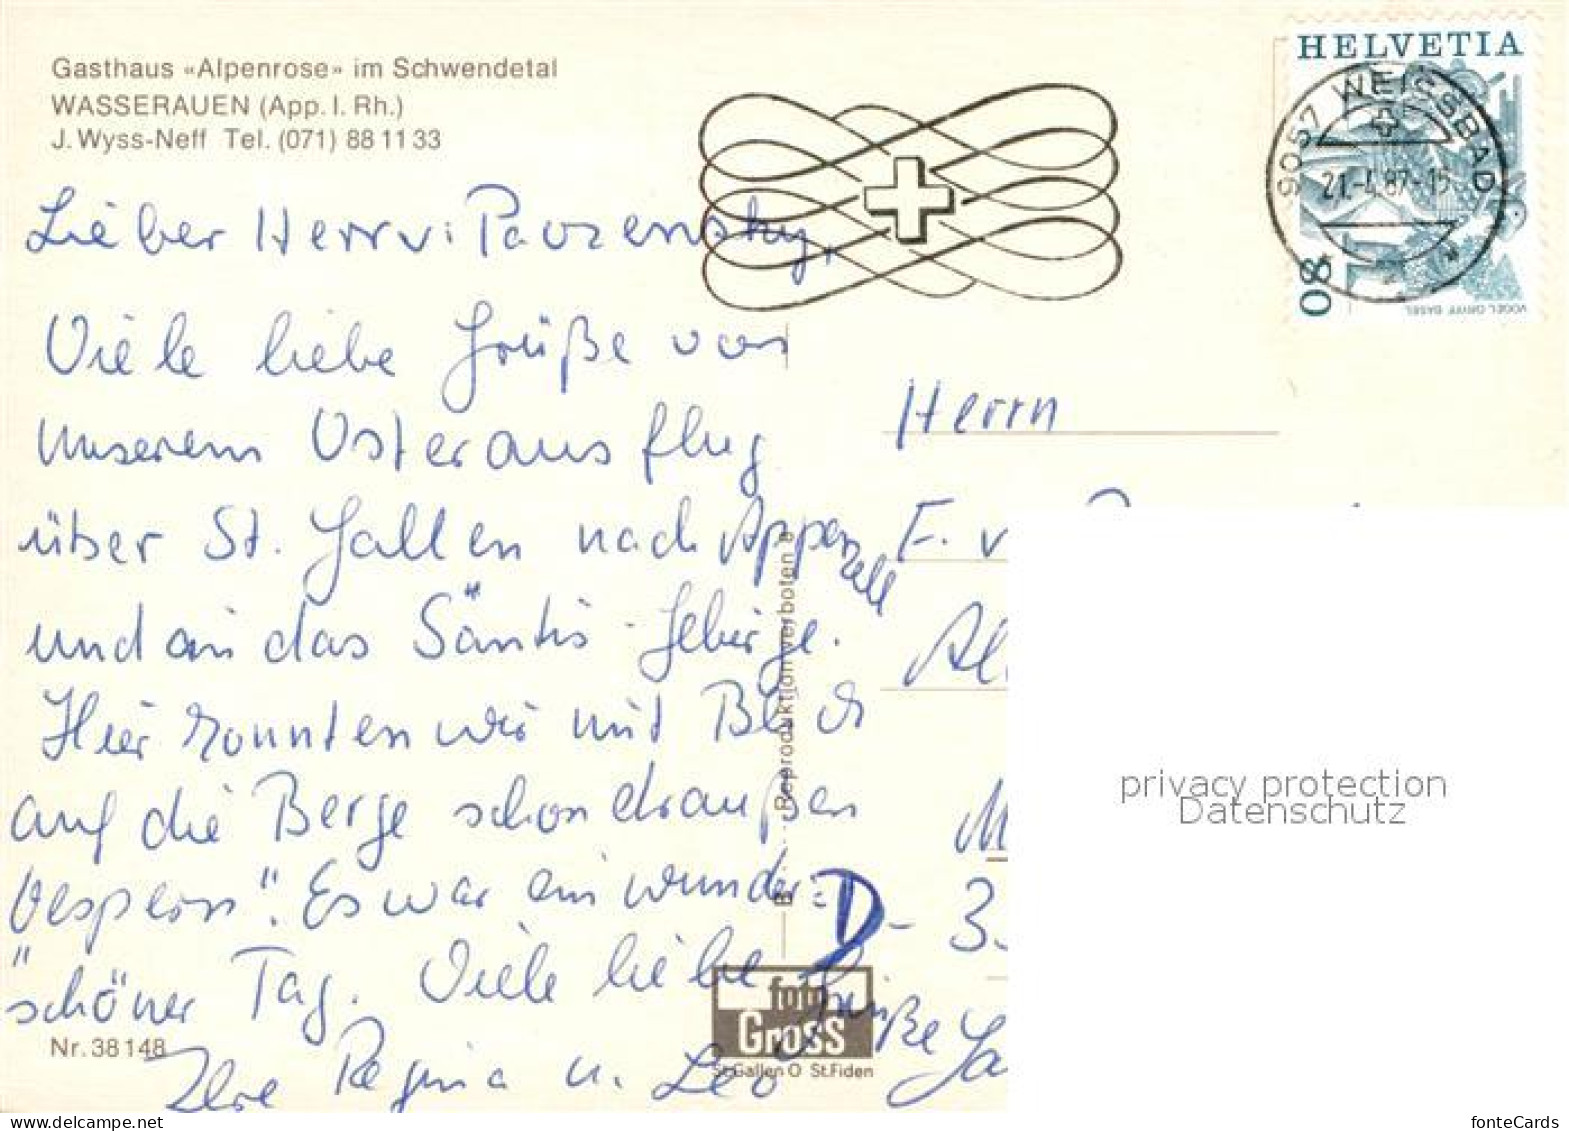 Gasthaus «Alpenrose» im Schwendetal
WASSERAUEN (App. I. Rh.)
J. Wyss-Neff Tel. (071) 88 11 33
Lieber Herr v:
Viele liebe Grüße von
unserem Osterausflug
über St. Gallen nach Appenzell
und in das Säntis-Gebirge.
Hier konnten wir mit Blick
auf die Berge schon draußen
"vespern". Es war ein wunder=
schöner Tag. Viele liebe Grüße
Ihre Regina u. Leo
Nr. 38148
HELVETIA
80
VOGEL GRYFF BASEL
9057 WEISSBAD
21.-4.87-15
Herrn
F. v
Al
M
D- 3
Reproduktion verboten
foto
Gross
St.Gallen O St.Fiden
privacy protection
Datenschutz
www.ansichtskartenversand.net
fonteCards